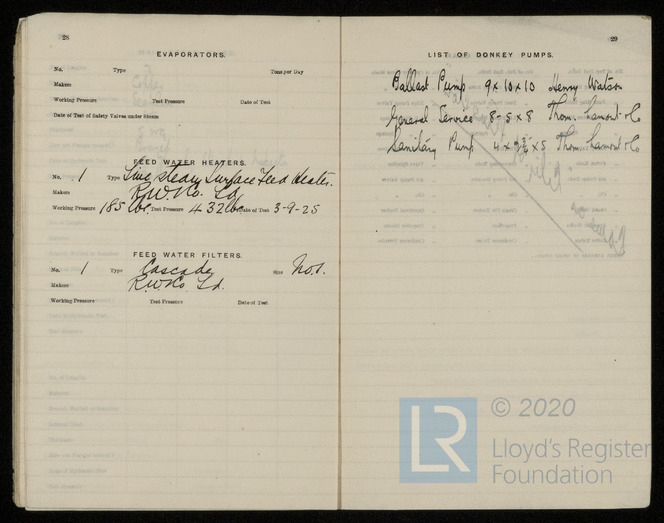 28
EVAPORATORS.
No. Type Tons per Day
Makers
Working Pressure Test Pressure Date of Test
Date of Test of Safety Valves under Steam
FEED WATER HEATERS.
No. 1 Type Live steam Surface Feed Heater.
Makers R.W. & Co. Ld
Working Pressure 185 lbs Test Pressure 432 lbs Date of Test 3-9-25
FEED WATER FILTERS.
No. 1 Type Cascade Size No. 1.
Makers R.W. & Co. Ld.
Working Pressure Test Pressure Date of Test
29
LIST OF DONKEY PUMPS.
Ballast Pump 9 x 10 x 10 Henry Watson
General Service 8 - 5 x 8 Thom. Lamont & Co
Sanitary Pump 4 x x 5 Thom. Lamont & Co
LR © 2020
Lloyd's Register
Foundation